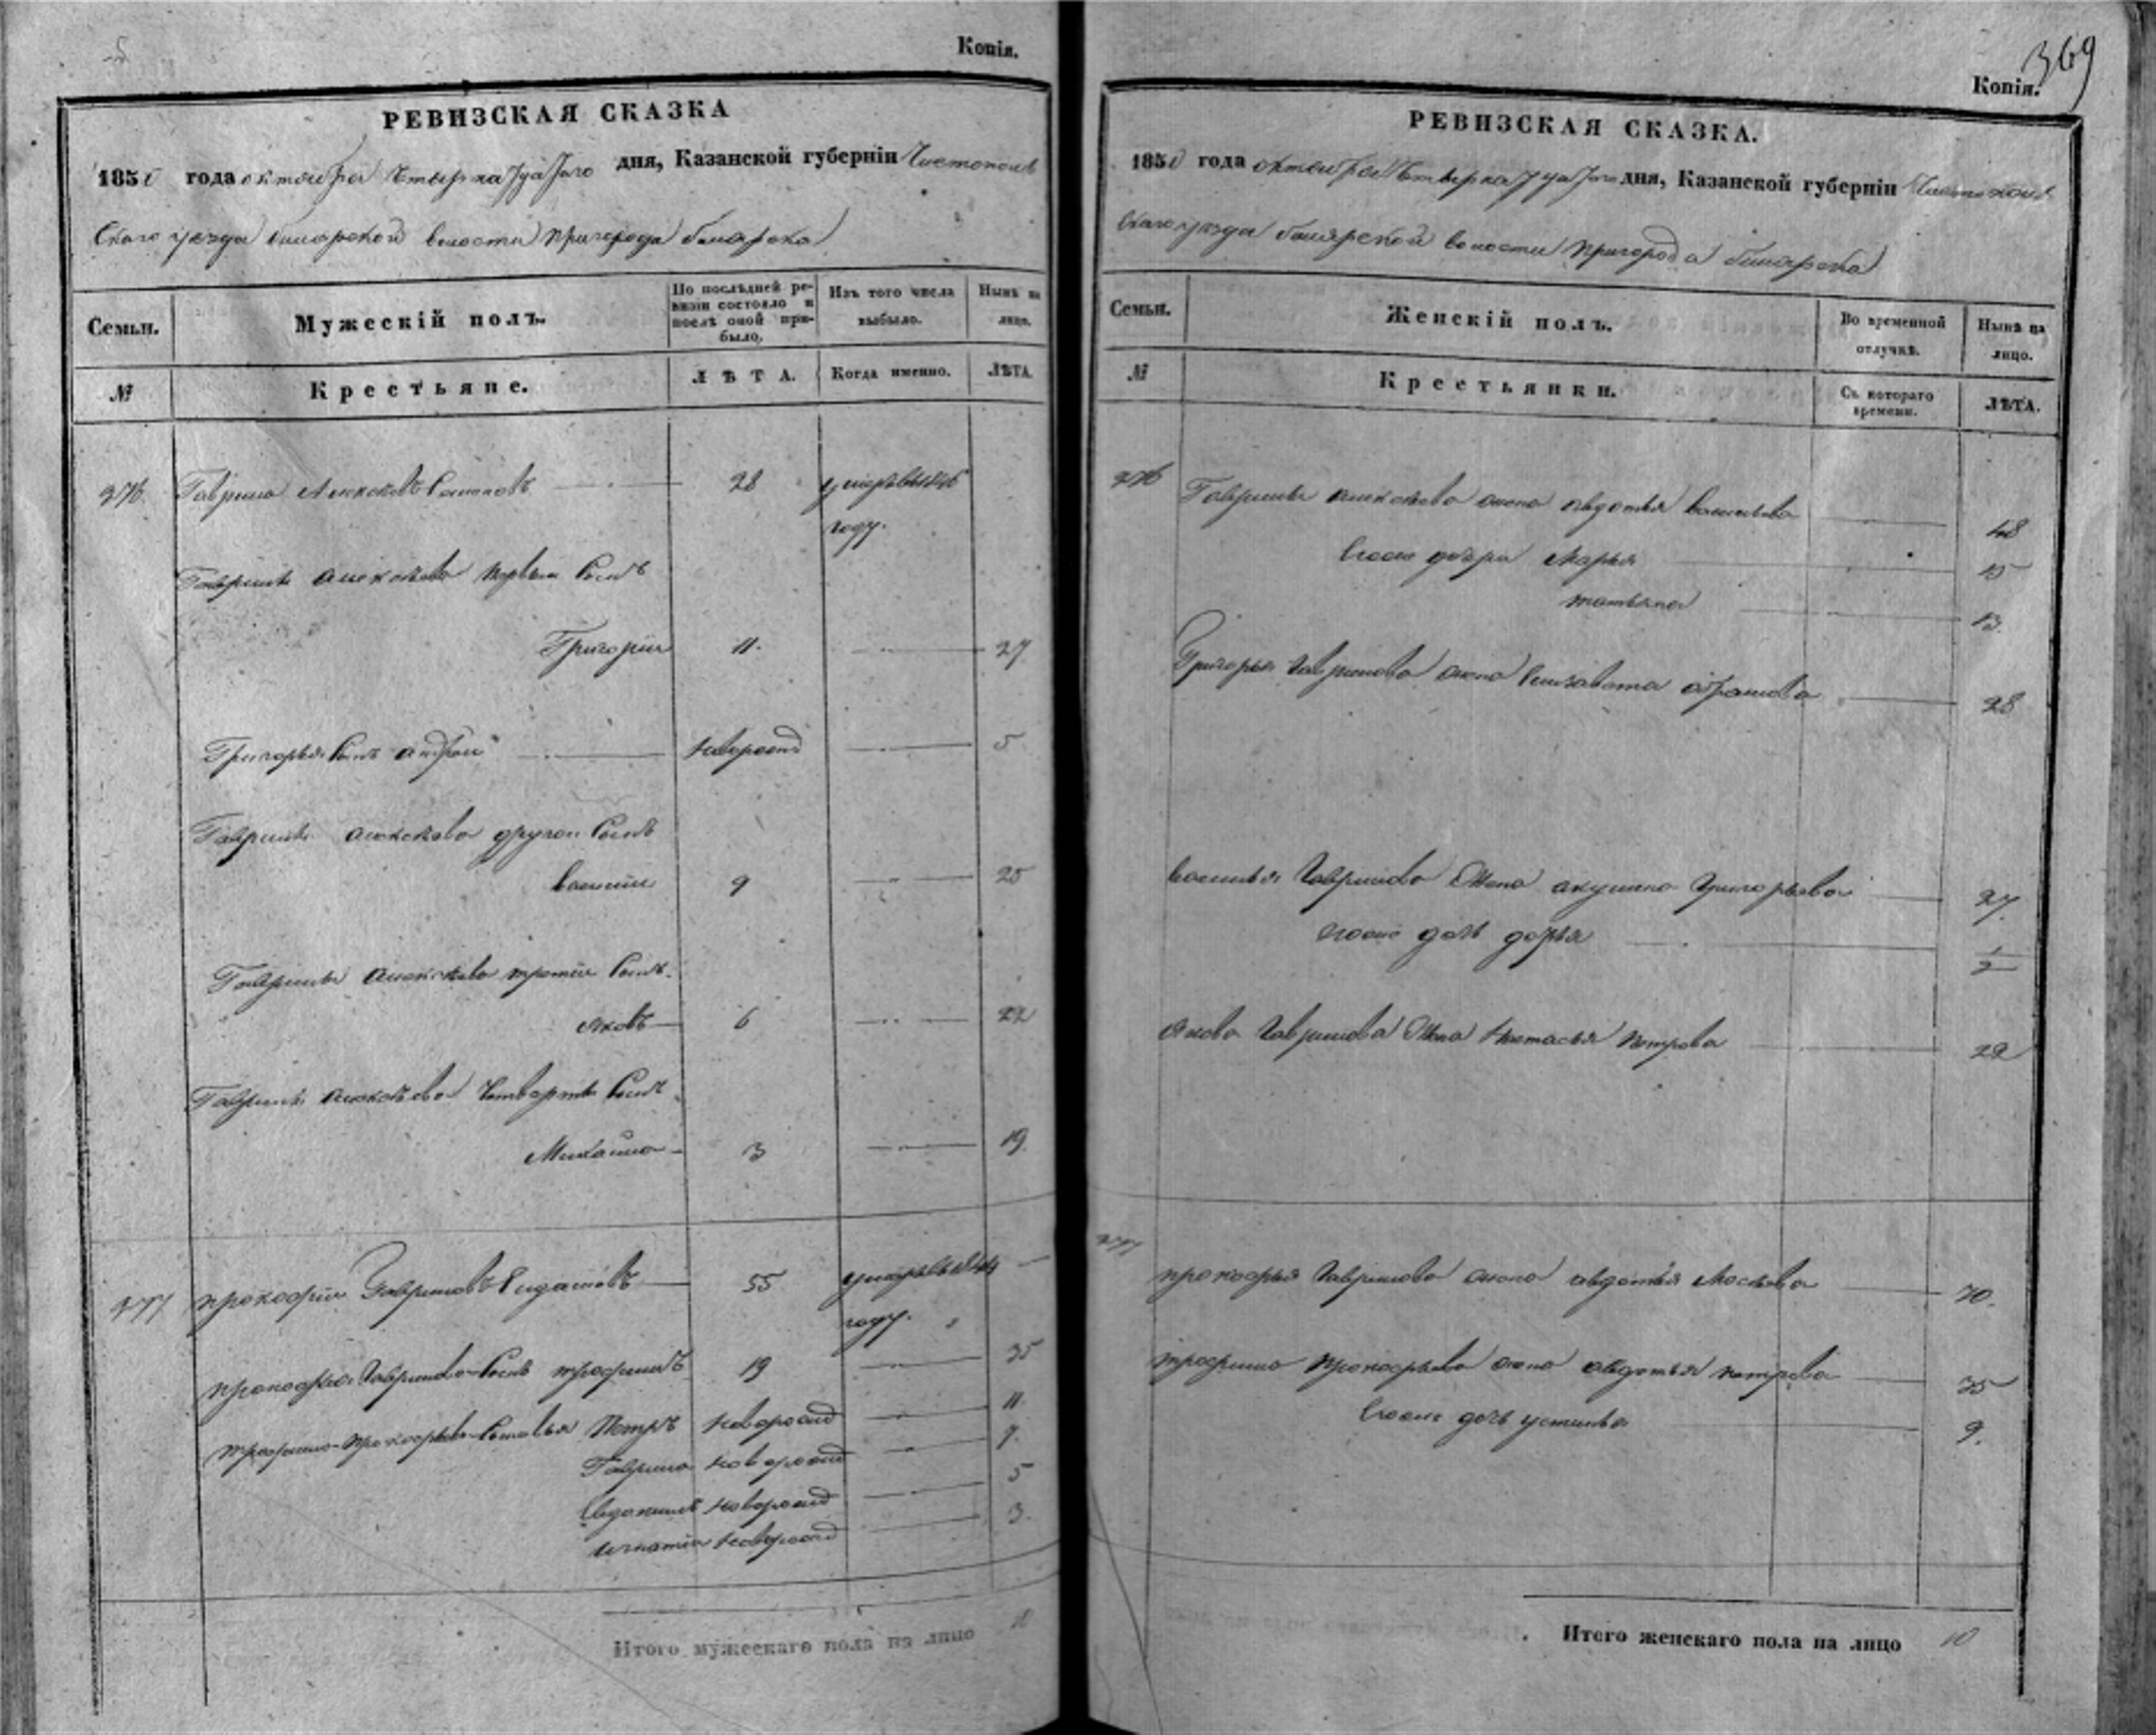 Копія.
РЕВИЗСКАЯ СКАЗКА
1850 года октября дня, Казанской губерніи Чистополь
скаго уезда билярской волости пригорода билярска
Семьи.
Мужескій полъ.
По послѣдней ре-
визіи состояло и
послѣ оной при-
было.
Изъ того числа
выбыло.
Нынѣ на
лицо.
№
Крестьяне.
ЛѢТА.
Когда именно.
ЛѢТА.
276. Гаврила Алексѣевъ 28 умеръ в 1846
году.
Гаврилы алексѣева первый сынъ
Григорій 11. 27
Григорья сынъ андрей новорожд 5
Гаврилы алексѣева другой сынъ
василій 9 25
Гаврилы алексѣева третій сынъ.
яковъ 6 22
Гаврилы алексѣева четвертый сынъ
Михайло 3 19.
277 прокофій Гавриловъ 55 умеръ в 1844
году.
прокофья Гаврилова сынъ трофимъ 19 35
трофима прокофьева сыновья Петръ новорожд 11.
Гаврила новорожд 7.
Евдокимъ новорожд 5
игнатій новорожд 3.
Итого мужескаго пола на лицо 10
369
Копія.
РЕВИЗСКАЯ СКАЗКА.
1850 года октября дня, Казанской губерніи Чистополь
скаго уезда билярской волости пригорода билярска
Семьи.
Женскій полъ.
Во временной
отлучкѣ.
Нынѣ на
лицо.
№
Крестьянки.
Съ котораго
времени.
ЛѢТА.
276 Гаврилы алексѣева жена авдотья васильева 48
Ихъ дочери Марья 15
татьяна 13.
Григорья Гаврилова жена Елизавета абрамова 28
василья Гаврилова жена акулина Григорьева 27.
ихъ дочь дарья 1/2
якова Гаврилова жена Настасья петрова 22
277
прокофья Гаврилова жена авдотья 70.
трофима прокофьева жена авдотья петрова 35
Ихъ дочь устинья 9.
Итого женскаго пола на лицо 10